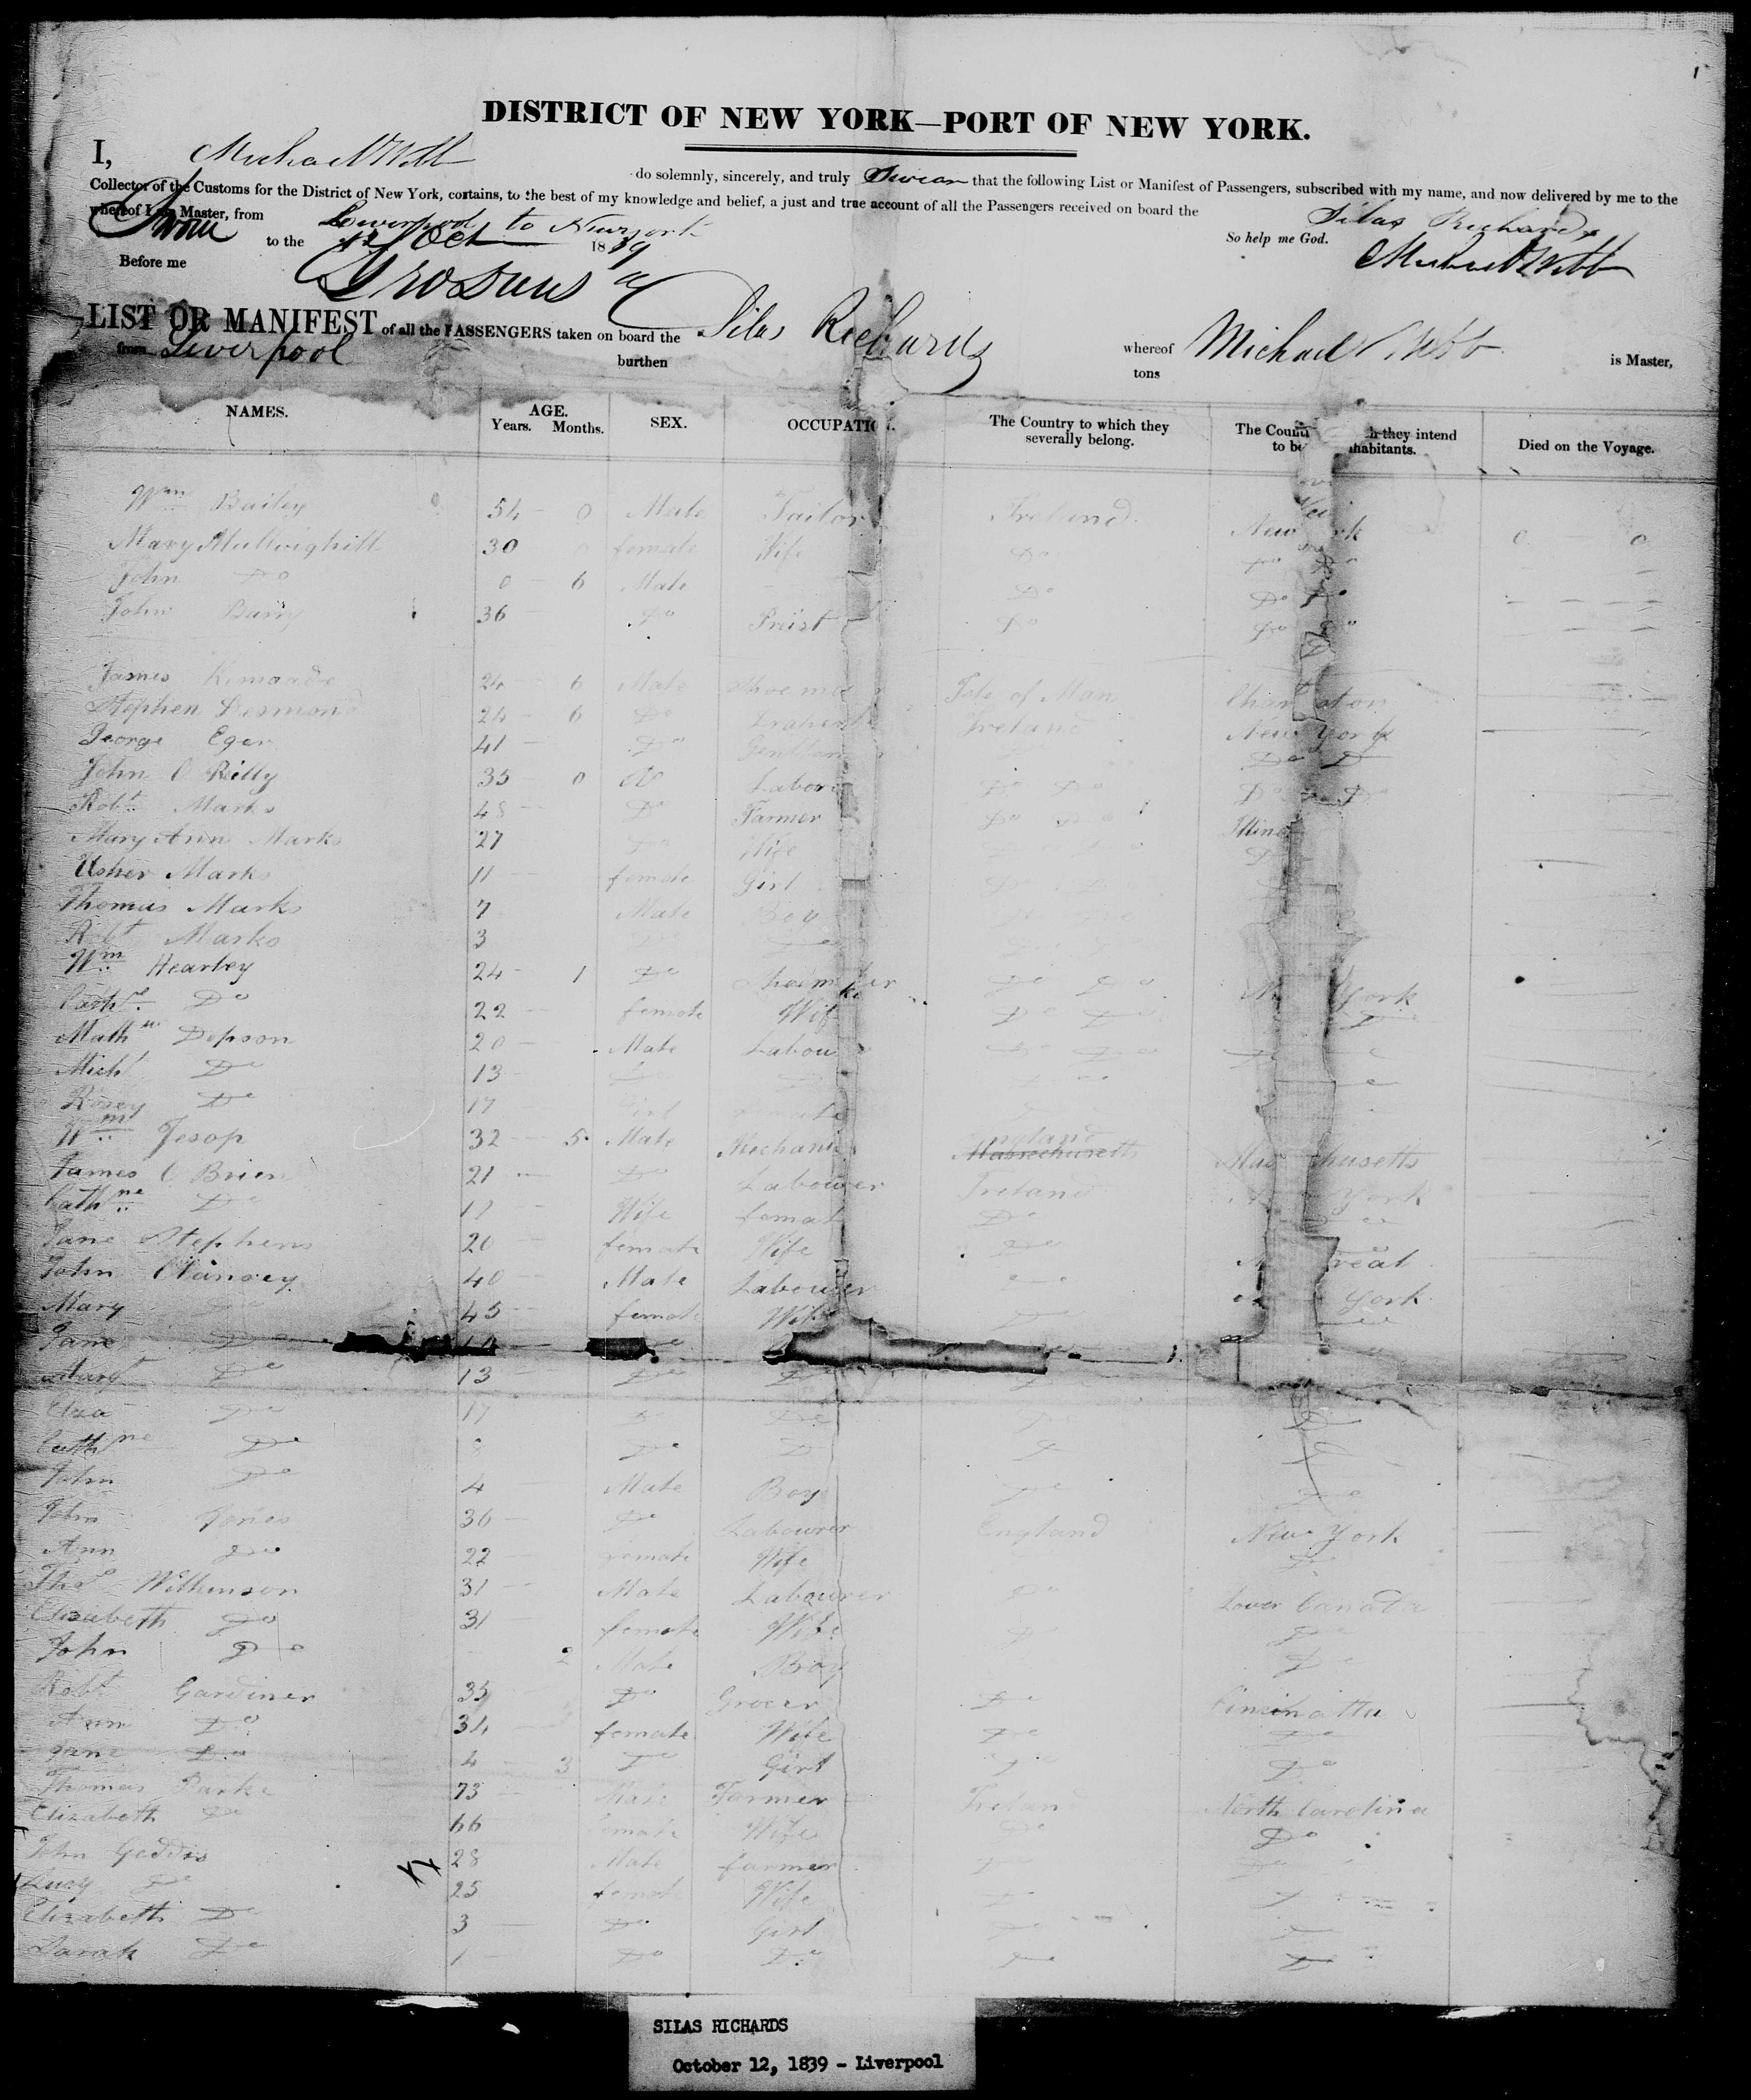 1
DISTRICT OF NEW YORK—PORT OF NEW YORK.
I, Michael Webb do solemnly, sincerely, and truly Swear that the following List or Manifest of Passengers, subscribed with my name, and now delivered by me to the
Collector of the Customs for the District of New York, contains, to the best of my knowledge and belief, a just and true account of all the Passengers received on board the Silas Richards
whereof I am Master, from Liverpool to Newyork
Sworn to the 12 Oct 1839 So help me God. Michael Webb
Before me
LIST OR MANIFEST of all the PASSENGERS taken on board the Silas Richards whereof Michael Webb is Master,
from Liverpool burthen tons
NAMES. AGE. Years. Months. SEX. OCCUPATIO The Country to which they severally belong. The Count h they intend to be nhabitants. Died on the Voyage.
Wm Bailey 54 0 Male Tailor Ireland New rk 0 0
Mary 30 0 female Wife Do Do Do
John Do 0 6 Male Do Do Do
John Barry 36 Do Preist Do Do Do
James 24 6 Male Shoema Isle of Man Char ston
Stephen Desmond 24 6 Do Draper Ireland New York
George Eger 41 Do Gentlem Do Do
John O Reilly 35 0 do Labor Do Do Do Do
Robt Marks 48 Do Farmer Do Do Illino
Mary Ann Marks 27 Do Wife Do Do Do
Usher Marks 11 female Girl Do Do
Thomas Marks 7 Male Boy Do Do
Robt Marks 3 Do
Wm Hearley 24 1 Do Shoemaker Do Do N York
Cathe Do 22 female Wif Do Do Do
Mathw Dopson 20 Male Labou Do Do
Michl Do 13
Rosey Do 17 Girl female
Wm Jesop 32 5 Male Mechani England Massechusetts Mas chusetts
James O Brien 21 Do Labourer Ireland York
Cathne Do 17 Wife femal Do
Jane Stephens 20 female Wife Do
John Clancey 40 Male Labourer M real
Mary 45 female Wife York
Jane Do Do
Margt Do 13 Do Do
Eliza Do 17 Do Do Do Do
Cathne Do Do Do Do
John Do 4 Male Boy Do Do
John Jones 36 Do Labourer England New York
Ann Do 22 female Wife Do
Thos Wilkinson 31 Male Labourer Do Lower Canada
Elizabeth Do 31 female Wife Do Do
John Do 2 Male Boy Do
Robt Gardiner 35 Do Grocer Do Cincinatta
Ann Do 34 female Wife Do Do
Jane Do 4 3 Do Girl Do Do
Thomas Parke 73 Male Farmer Ireland North Carolina
Elizabeth Do 66 female Wife Do Do
John Geddis 28 Male farmer Do Do
Lucy Do 25 female Wife Do
Elizabeth Do 3 Do Girl Do Do
Sarah Do 1 Do Do Do Do
SILAS RICHARDS
October 12, 1839 - Liverpool